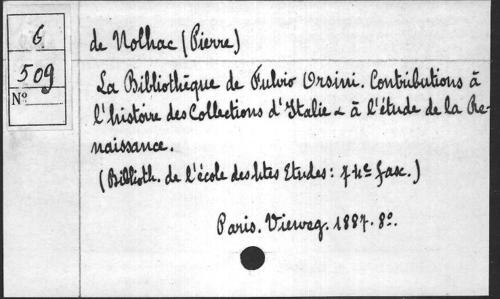 6
509
Nº
de Nolhac (Pierre)
La Bibliothèque de Fulvio Orsini. Contributions à
l'histoire des Collections d'Italie & à l'étude de la Re-
naissance.
(Biblioth. de l'école des htes Etudes: 74e fasc.)
Paris. Vieweg. 1887. 8º.